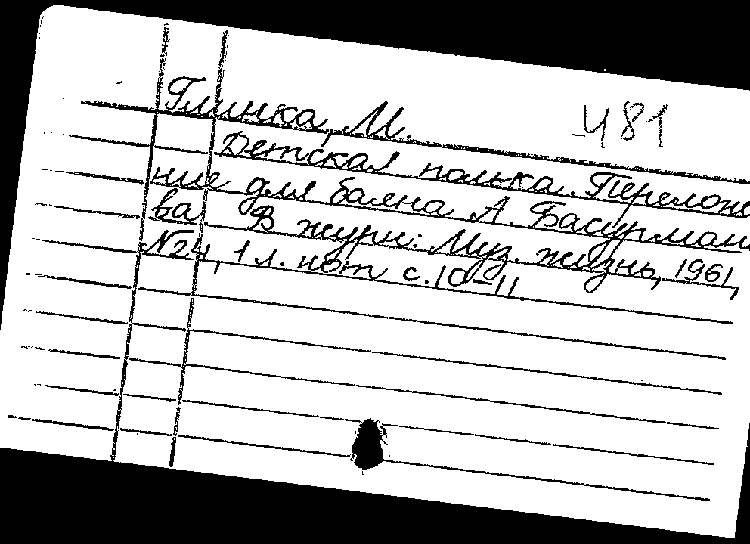 Глинка, М.
481
Детская полька. Переложе
ние для баяна А. Басурмано
ва. В журн.: Муз. жизнь, 1961,
№24, 1 л. нот с. 10-11.